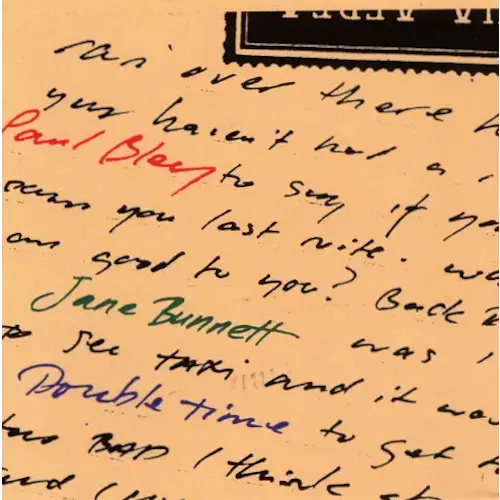 VIA AEREA
over there
you haven't had a
Paul Bley to say if you
you last nite. wa
good to you? Back
Jane Bunnett was
to see taxi and it wou
Double time to get
too BAD I think
and I